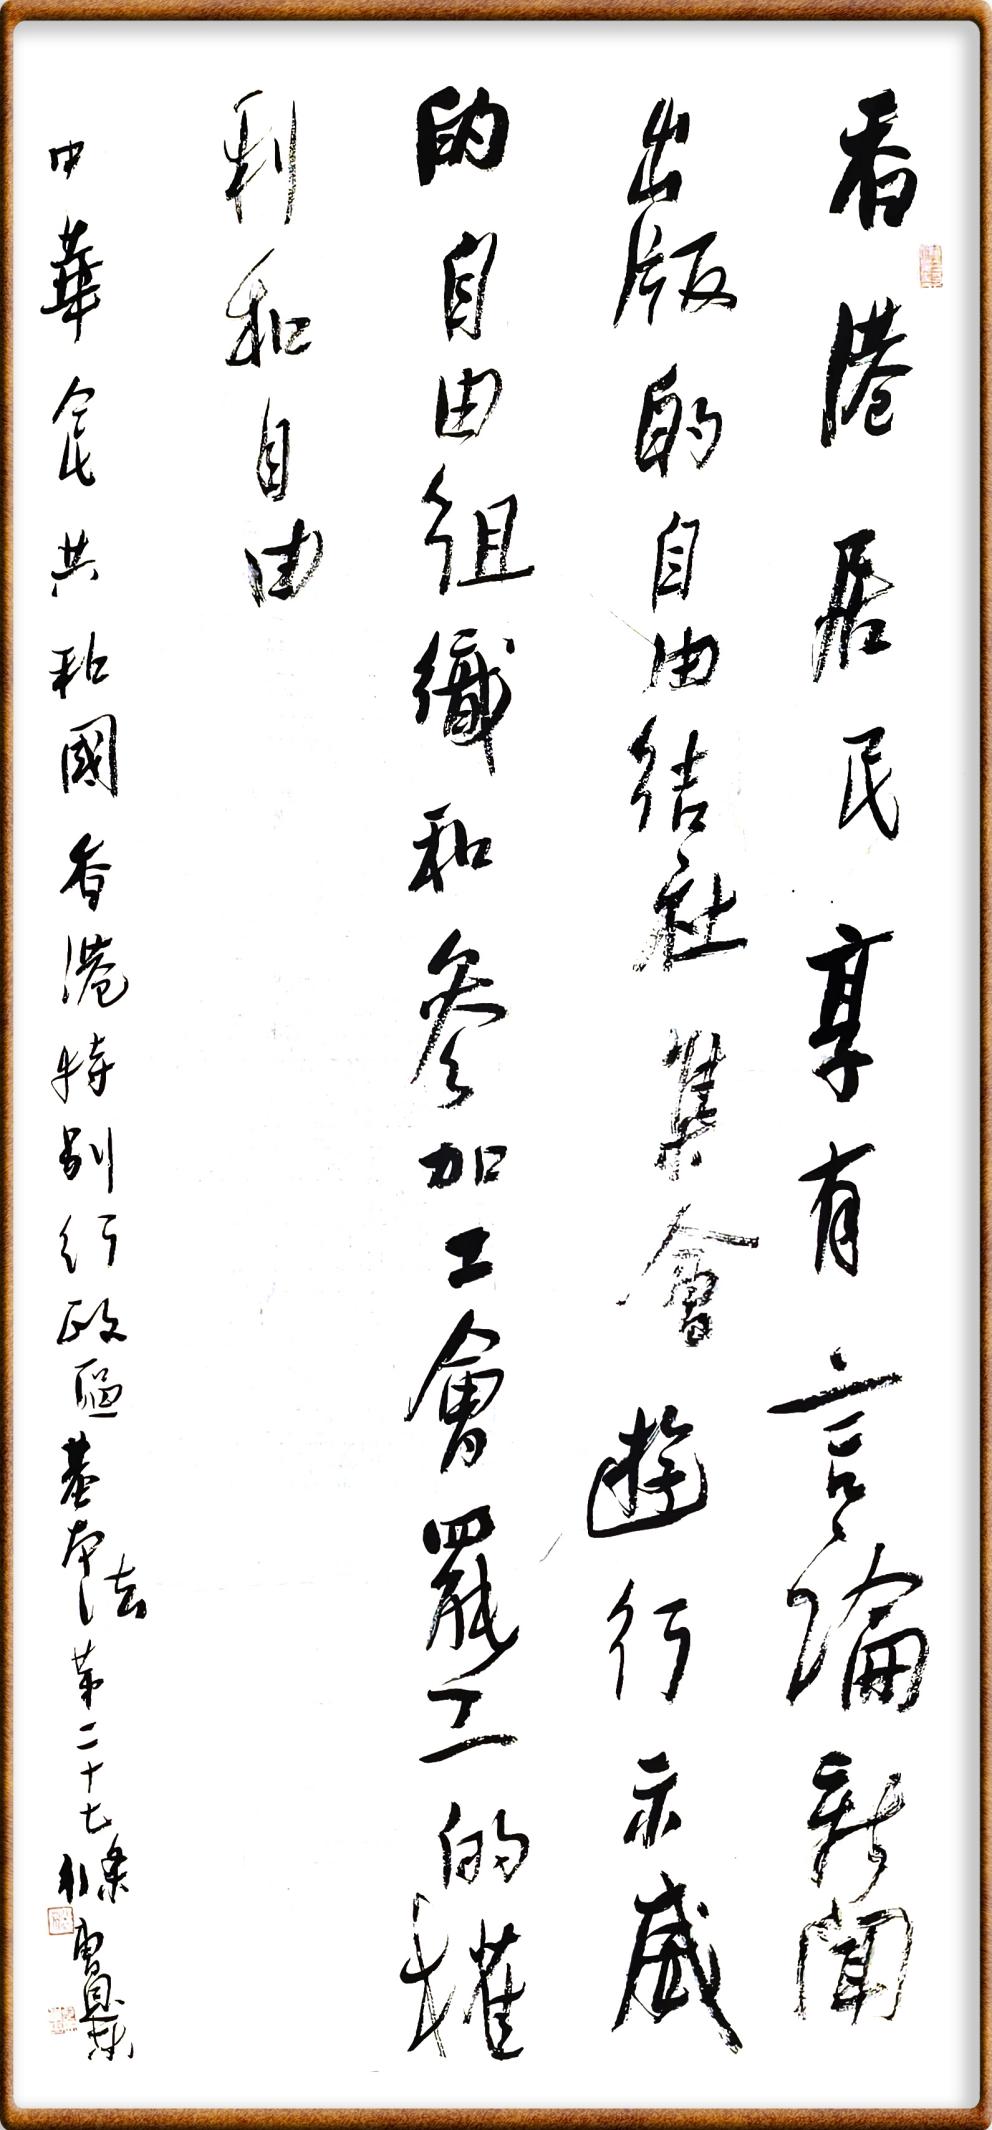 香港居民享有言論新聞
出版的自由結社集會遊行示威
的自由組織和參加工會罷工的權
利和自由
中華人民共和國香港特別行政區基本法第二十七條